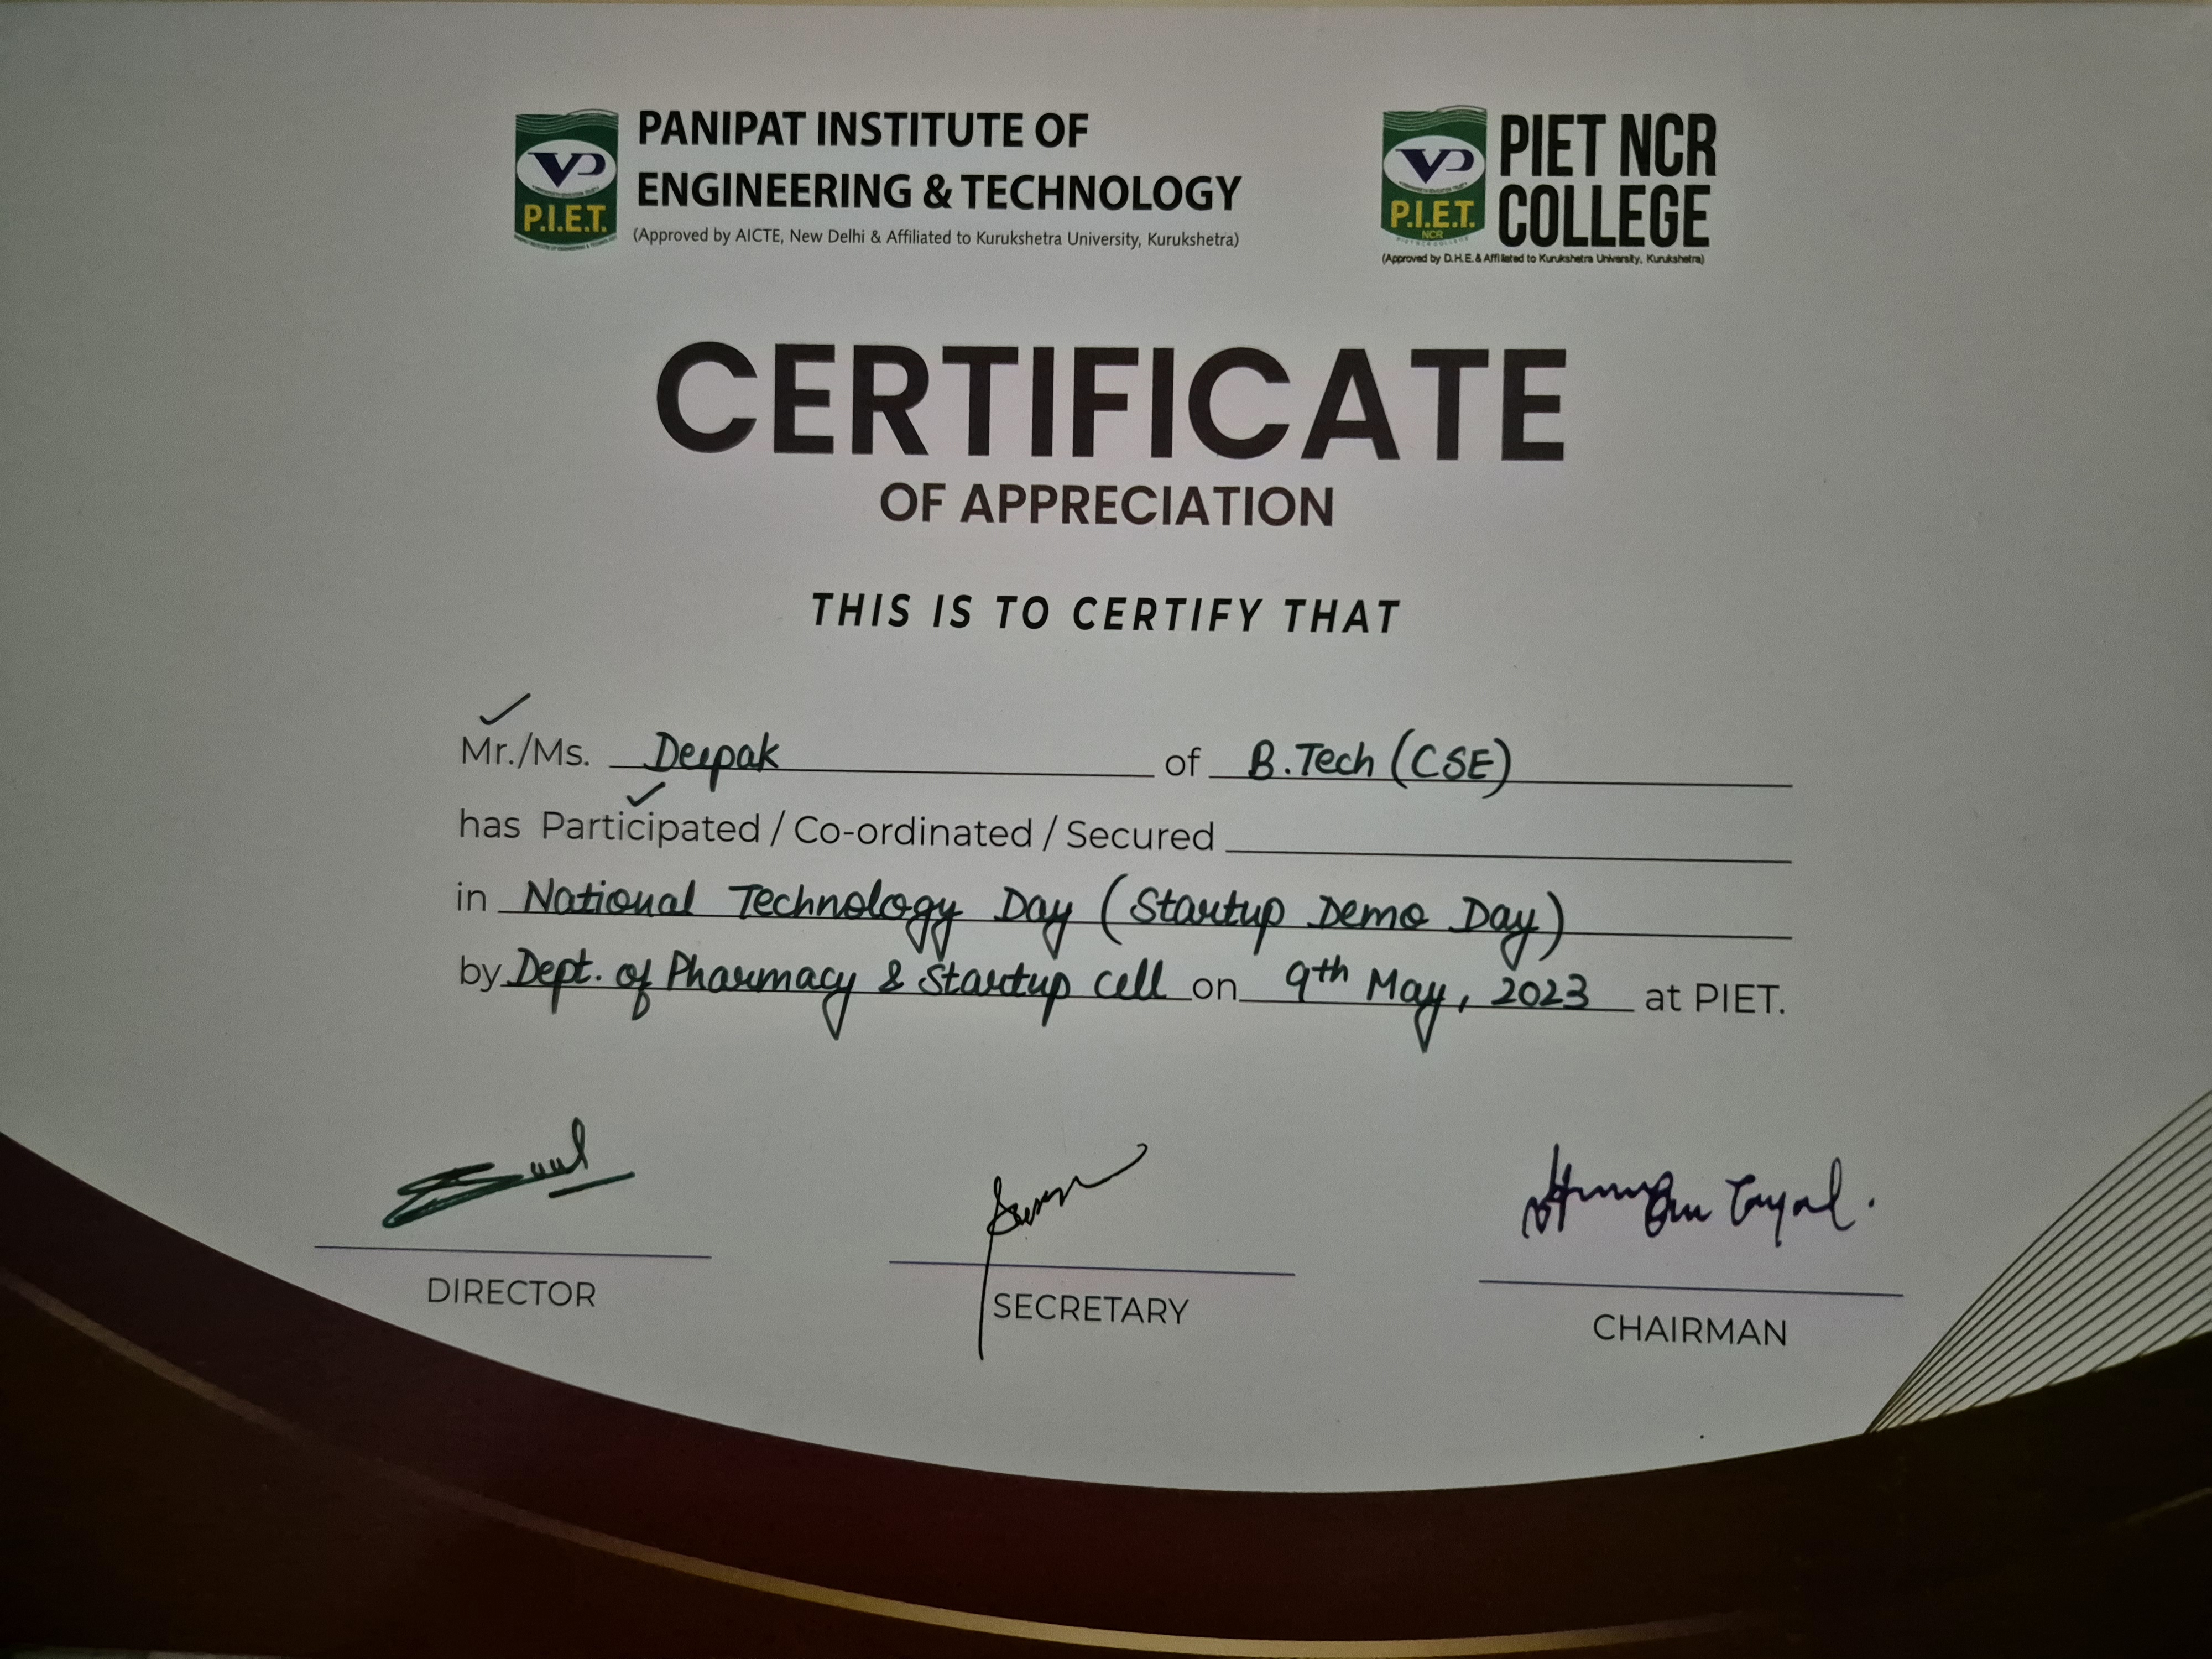 PANIPAT INSTITUTE OF
ENGINEERING & TECHNOLOGY
(Approved by AICTE, New Delhi & Affiliated to Kurukshetra University, Kurukshetra)
P.I.E.T.
PIET NCR
COLLEGE
(Approved by D.H.E. & Affiliated to Kurukshetra University, Kurukshetra)
P.I.E.T.
NCR
CERTIFICATE
OF APPRECIATION
THIS IS TO CERTIFY THAT
Mr./Ms. Deepak of B.Tech (CSE)
has Participated / Co-ordinated / Secured
in National Technology Day (Startup Demo Day)
by Dept. of Pharmacy & Startup cell on 9th May, 2023 at PIET.
DIRECTOR
SECRETARY
CHAIRMAN